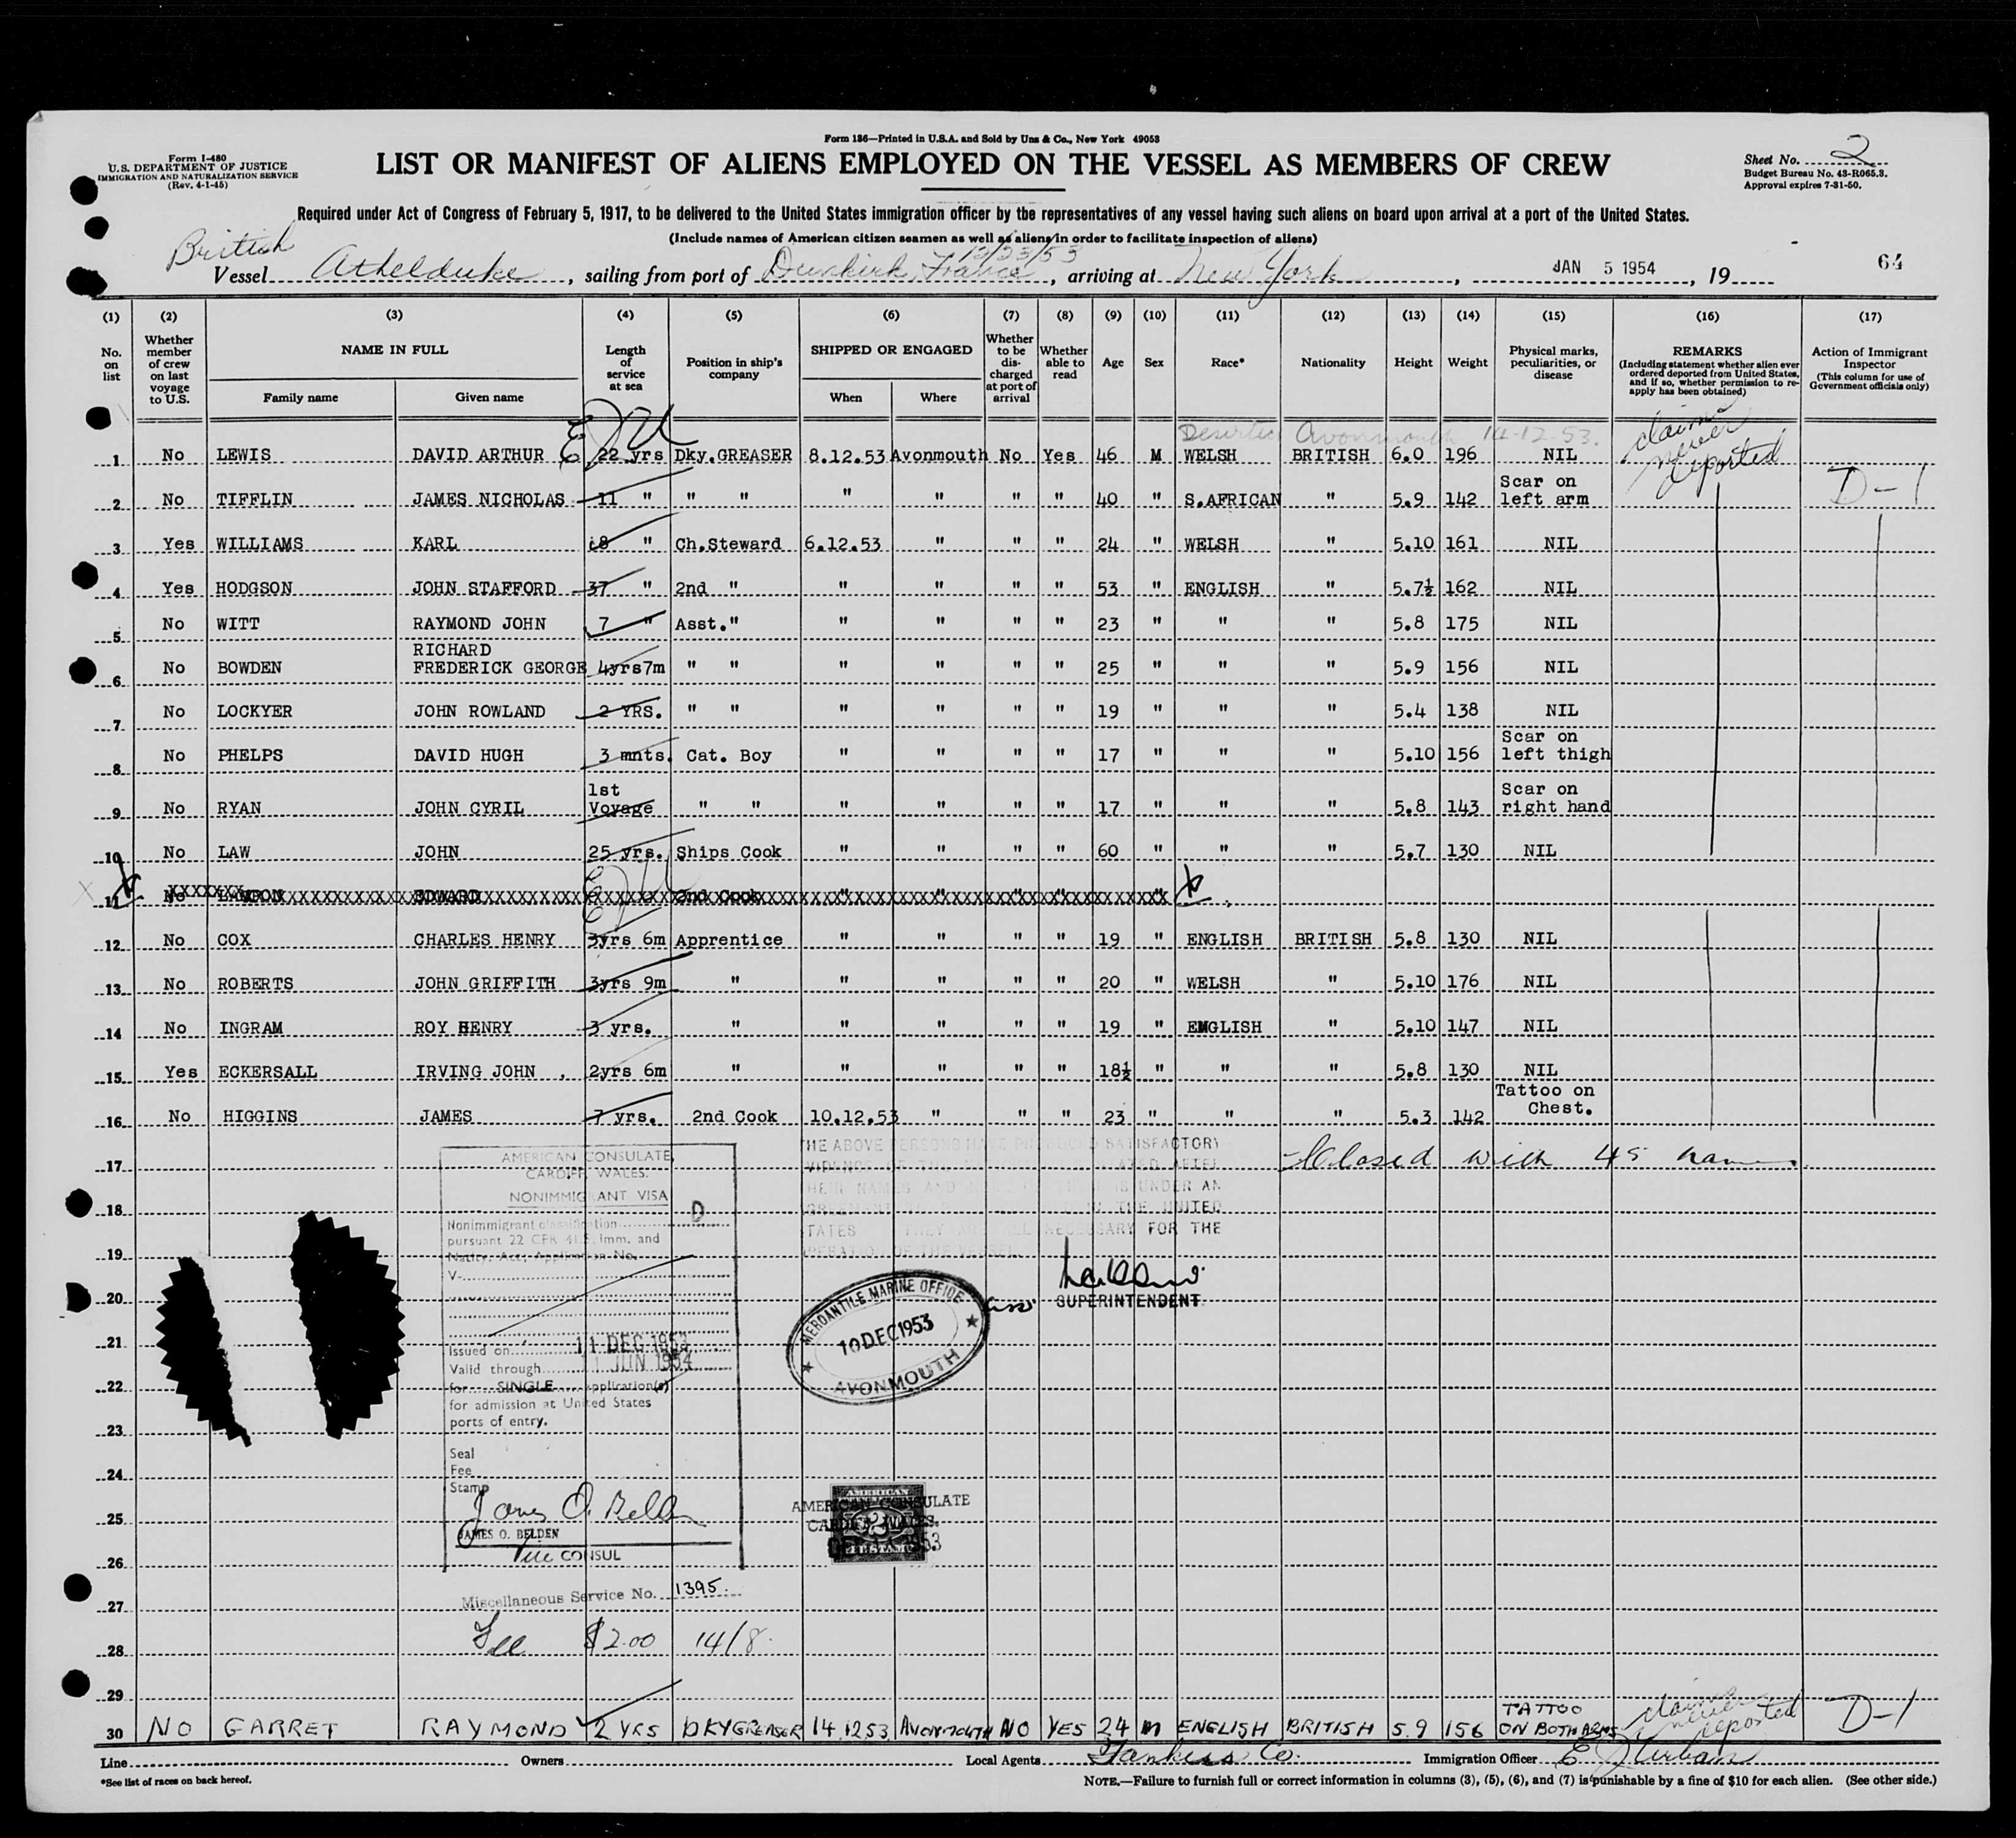 Form 136—Printed in U.S.A. and Sold by Unz & Co., New York 49053
Form I-480
U.S. DEPARTMENT OF JUSTICE
IMMIGRATION AND NATURALIZATION SERVICE
(Rev. 4-1-45)
LIST OR MANIFEST OF ALIENS EMPLOYED ON THE VESSEL AS MEMBERS OF CREW
Sheet No. 2
Budget Bureau No. 43-R065.3.
Approval expires 7-31-50.
Required under Act of Congress of February 5, 1917, to be delivered to the United States immigration officer by the representatives of any vessel having such aliens on board upon arrival at a port of the United States.
(Include names of American citizen seamen as well as aliens in order to facilitate inspection of aliens)
British
12/23/53
Vessel Athelduke, sailing from port of Dunkirk, France, arriving at New York, JAN 5 1954, 19
64
(1) (2) (3) (4) (5) (6) (7) (8) (9) (10) (11) (12) (13) (14) (15) (16) (17)
No. on list
Whether member of crew on last voyage to U.S.
NAME IN FULL
Family name
Given name
Length of service at sea
Position in ship's company
SHIPPED OR ENGAGED
When
Where
Whether to be discharged at port of arrival
Whether able to read
Age
Sex
Race*
Nationality
Height
Weight
Physical marks, peculiarities, or disease
REMARKS
(Including statement whether alien ever ordered deported from United States, and if so, whether permission to re-apply has been obtained)
Action of Immigrant Inspector
(This column for use of Government officials only)
Deserted Avonmouth 14-12-53.
claims never deported
1 No LEWIS DAVID ARTHUR 22 yrs Dky.GREASER 8.12.53 Avonmouth No Yes 46 M WELSH BRITISH 6.0 196 NIL
2 No TIFFLIN JAMES NICHOLAS 11 " " " " " " " 40 " S.AFRICAN " 5.9 142 Scar on left arm D-1
3 Yes WILLIAMS KARL 8 " Ch.Steward 6.12.53 " " " 24 " WELSH " 5.10 161 NIL
4 Yes HODGSON JOHN STAFFORD 37 " 2nd " " " " " 53 " ENGLISH " 5.7½ 162 NIL
5 No WITT RAYMOND JOHN 7 " Asst." " " " " 23 " " " 5.8 175 NIL
6 No BOWDEN RICHARD FREDERICK GEORGE 4yrs7m " " " " " " 25 " " " 5.9 156 NIL
7 No LOCKYER JOHN ROWLAND 2 YRS. " " " " " " 19 " " " 5.4 138 NIL
8 No PHELPS DAVID HUGH 3 mnts. Cat. Boy " " " " 17 " " " 5.10 156 Scar on left thigh
9 No RYAN JOHN CYRIL 1st Voyage " " " " " " 17 " " " 5.8 143 Scar on right hand
10 No LAW JOHN 25 yrs. Ships Cook " " " " 60 " " " 5.7 130 NIL
11 No EDWARD 2nd Cook " " " " "
12 No COX CHARLES HENRY 3yrs 6m Apprentice " " " " 19 " ENGLISH BRITISH 5.8 130 NIL
13 No ROBERTS JOHN GRIFFITH 3yrs 9m " " " " " 20 " WELSH " 5.10 176 NIL
14 No INGRAM ROY HENRY 3 yrs. " " " " " 19 " ENGLISH " 5.10 147 NIL
15 Yes ECKERSALL IRVING JOHN . 2yrs 6m " " " " " 18½ " " " 5.8 130 NIL
16 No HIGGINS JAMES 7 yrs. 2nd Cook 10.12.53 " " " 23 " " " 5.3 142 Tattoo on Chest.
17
18
19
20
21
22
23
24
25
26
27
28
29
Closed with 45 names
AMERICAN CONSULATE
CARDIFF, WALES.
NONIMMIGRANT VISA
Nonimmigrant classification D
pursuant 22 CFR 41.5, Imm. and
Natlty. Act, Application No.
V-
Issued on 11 DEC 1953
Valid through 11 JUN 1954
for SINGLE application(s)
for admission at United States
ports of entry.
Seal
Fee
Stamp
James O. Belden
JAMES O. BELDEN
Vice CONSUL
Miscellaneous Service No. 1395
Fee $2.00 14/8
THE ABOVE PERSONS HAVE PRODUCED SATISFACTORY
EVIDENCE OF THE
THEIR NAMES AND IS UNDER AN
AGREEMENT THE UNITED
STATES THEY ARE ALL NECESSARY FOR THE
OPERATION OF THE VESSEL.
SUPERINTENDENT
MERCANTILE MARINE OFFICE
10 DEC 1953
AVONMOUTH
AMERICAN CONSULATE
CARDIFF, WALES.
AMERICAN
FEE STAMP
30 NO GARRET RAYMOND 2 YRS DKYGREASER 14.12.53 AVONMOUTH NO YES 24 M ENGLISH BRITISH 5.9 156 TATTOO ON BOTH ARMS claims never deported D-1
Line Owners Local Agents Tankers Co. Immigration Officer E J Urban
*See list of races on back hereof.
NOTE.—Failure to furnish full or correct information in columns (3), (5), (6), and (7) is punishable by a fine of $10 for each alien. (See other side.)